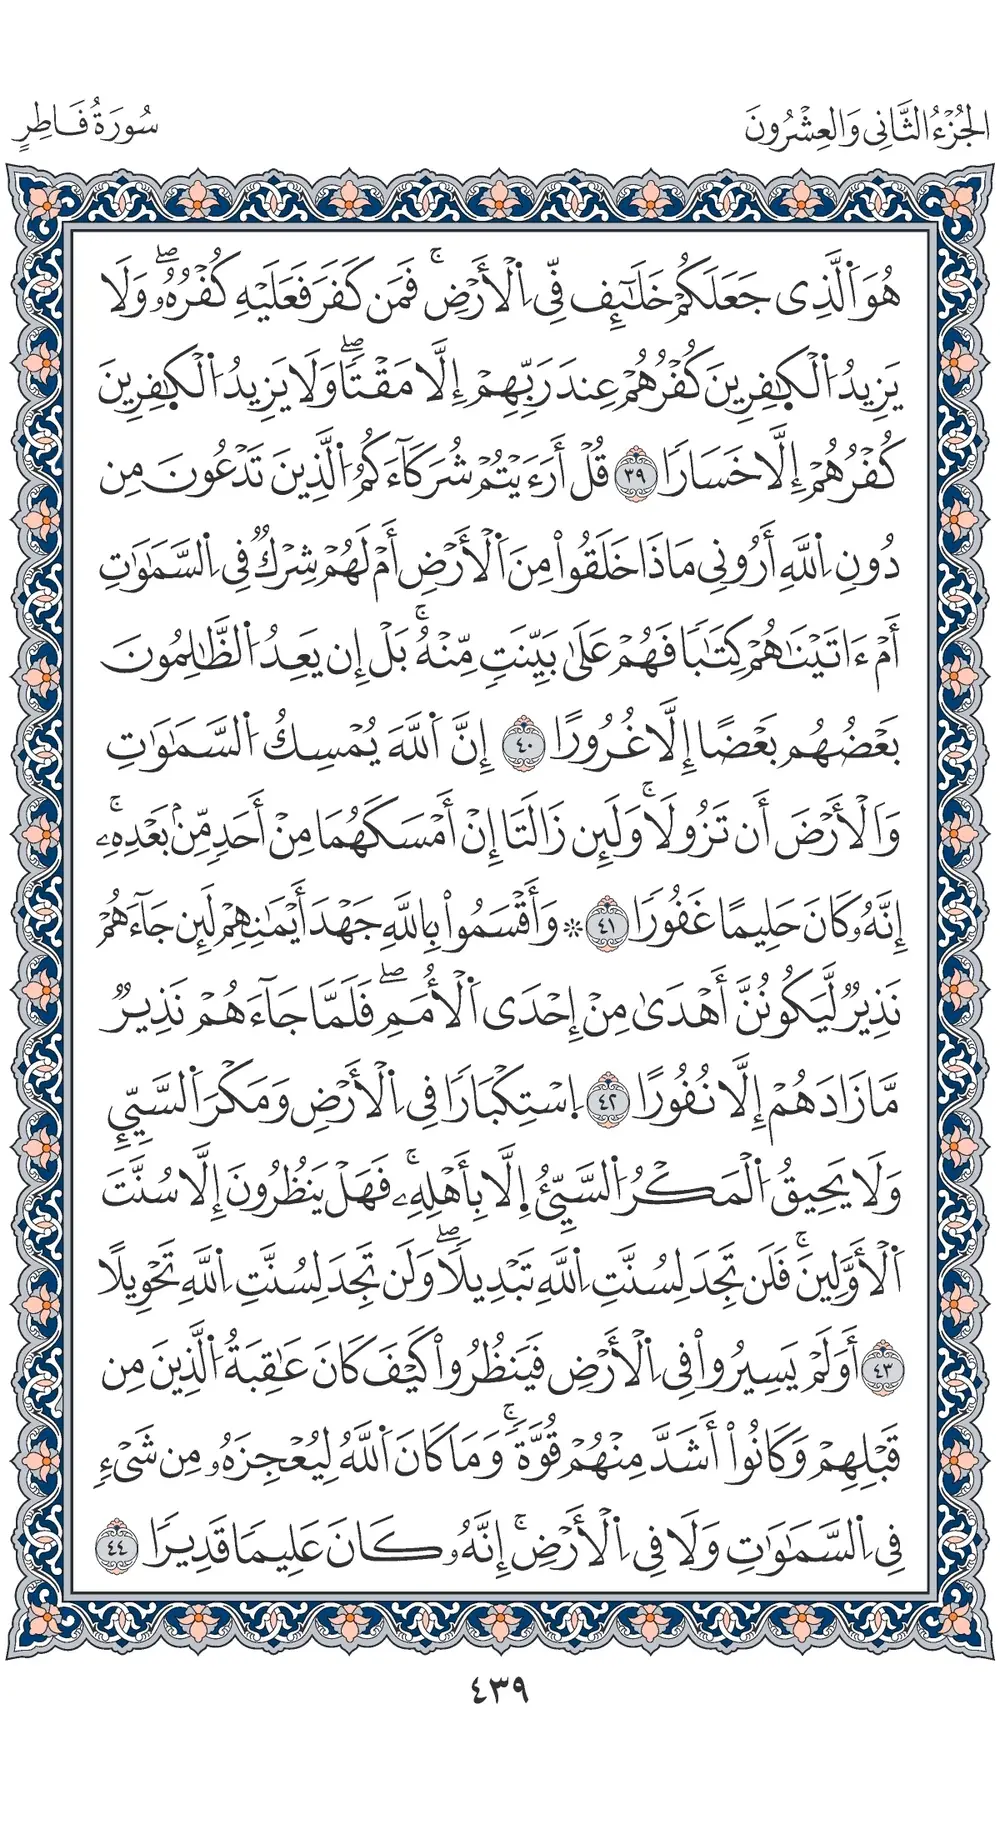 الجُزْءُ الثَّانِي وَالعِشْرُونَ
سُورَةُ فَاطِرٍ
هُوَ ٱلَّذِي جَعَلَكُمْ خَلَٰٓئِفَ فِي ٱلْأَرْضِۚ فَمَن كَفَرَ فَعَلَيْهِ كُفْرُهُۥۖ وَلَا
يَزِيدُ ٱلْكَٰفِرِينَ كُفْرُهُمْ عِندَ رَبِّهِمْ إِلَّا مَقْتًاۖ وَلَا يَزِيدُ ٱلْكَٰفِرِينَ
كُفْرُهُمْ إِلَّا خَسَارًا ٣٩ قُلْ أَرَءَيْتُمْ شُرَكَآءَكُمُ ٱلَّذِينَ تَدْعُونَ مِن
دُونِ ٱللَّهِ أَرُونِي مَاذَا خَلَقُوا۟ مِنَ ٱلْأَرْضِ أَمْ لَهُمْ شِرْكٌ فِي ٱلسَّمَٰوَٰتِ
أَمْ ءَاتَيْنَٰهُمْ كِتَٰبًا فَهُمْ عَلَىٰ بَيِّنَتٍ مِّنْهُۚ بَلْ إِن يَعِدُ ٱلظَّٰلِمُونَ
بَعْضُهُم بَعْضًا إِلَّا غُرُورًا ٤٠ إِنَّ ٱللَّهَ يُمْسِكُ ٱلسَّمَٰوَٰتِ
وَٱلْأَرْضَ أَن تَزُولَاۚ وَلَئِن زَالَتَآ إِنْ أَمْسَكَهُمَا مِنْ أَحَدٍ مِّنۢ بَعْدِهِۦٓۚ
إِنَّهُۥ كَانَ حَلِيمًا غَفُورًا ٤١ ۞ وَأَقْسَمُوا۟ بِٱللَّهِ جَهْدَ أَيْمَٰنِهِمْ لَئِن جَآءَهُمْ
نَذِيرٌ لَّيَكُونُنَّ أَهْدَىٰ مِنْ إِحْدَى ٱلْأُمَمِۖ فَلَمَّا جَآءَهُمْ نَذِيرٌ
مَّا زَادَهُمْ إِلَّا نُفُورًا ٤٢ ٱسْتِكْبَارًا فِي ٱلْأَرْضِ وَمَكْرَ ٱلسَّيِّئِ
وَلَا يَحِيقُ ٱلْمَكْرُ ٱلسَّيِّئُ إِلَّا بِأَهْلِهِۦۚ فَهَلْ يَنظُرُونَ إِلَّا سُنَّتَ
ٱلْأَوَّلِينَۚ فَلَن تَجِدَ لِسُنَّتِ ٱللَّهِ تَبْدِيلًاۖ وَلَن تَجِدَ لِسُنَّتِ ٱللَّهِ تَحْوِيلًا
٤٣ أَوَلَمْ يَسِيرُوا۟ فِي ٱلْأَرْضِ فَيَنظُرُوا۟ كَيْفَ كَانَ عَٰقِبَةُ ٱلَّذِينَ مِن
قَبْلِهِمْ وَكَانُوٓا۟ أَشَدَّ مِنْهُمْ قُوَّةًۚ وَمَا كَانَ ٱللَّهُ لِيُعْجِزَهُۥ مِن شَيْءٍ
فِي ٱلسَّمَٰوَٰتِ وَلَا فِي ٱلْأَرْضِۚ إِنَّهُۥ كَانَ عَلِيمًا قَدِيرًا ٤٤
٤٣٩